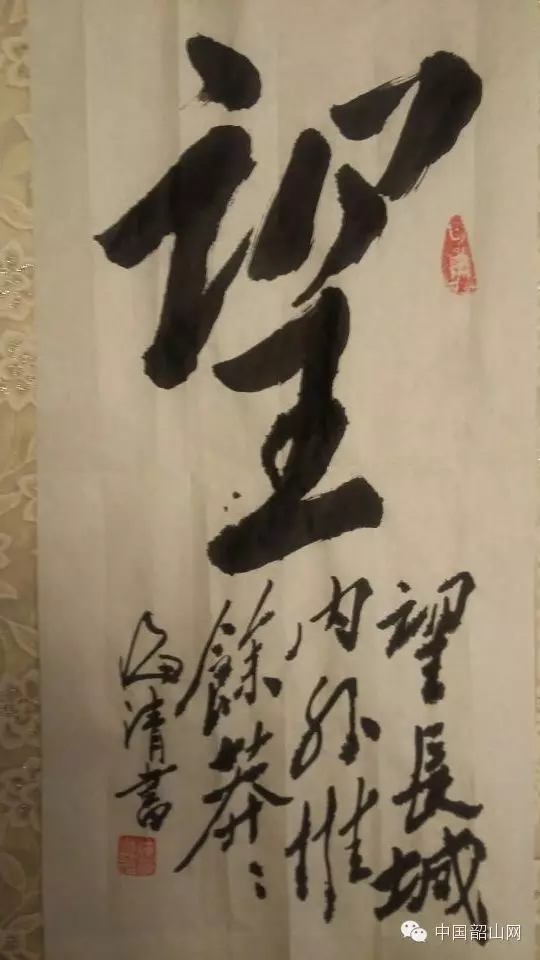 望
望長城
内外惟
餘莽〻
清書
中国韶山网